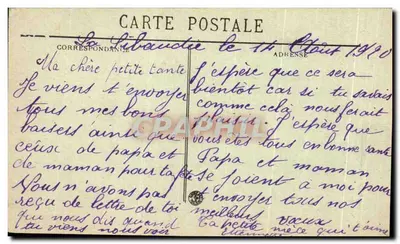 CARTE POSTALE
La Libaudie le 14 Août 1920
CORRESPONDANCE
ADRESSE
Ma chère petite tante
Je viens t'envoyer
tous mes bons
baisers ainsi que
ceux de papa et
de maman pour ta fête
Nous n'avons pas
reçu de lettre de toi
qui nous dis quand
tu viens nous voir
J'espère que ce sera
bientôt car si tu savais
comme cela nous ferait
plaisir. J'espère que
vous êtes tous en bonne santé
Papa et maman
se joient à moi pour
t'envoyer tous nos
meilleurs vœux
Ta petite nièce qui t'aime